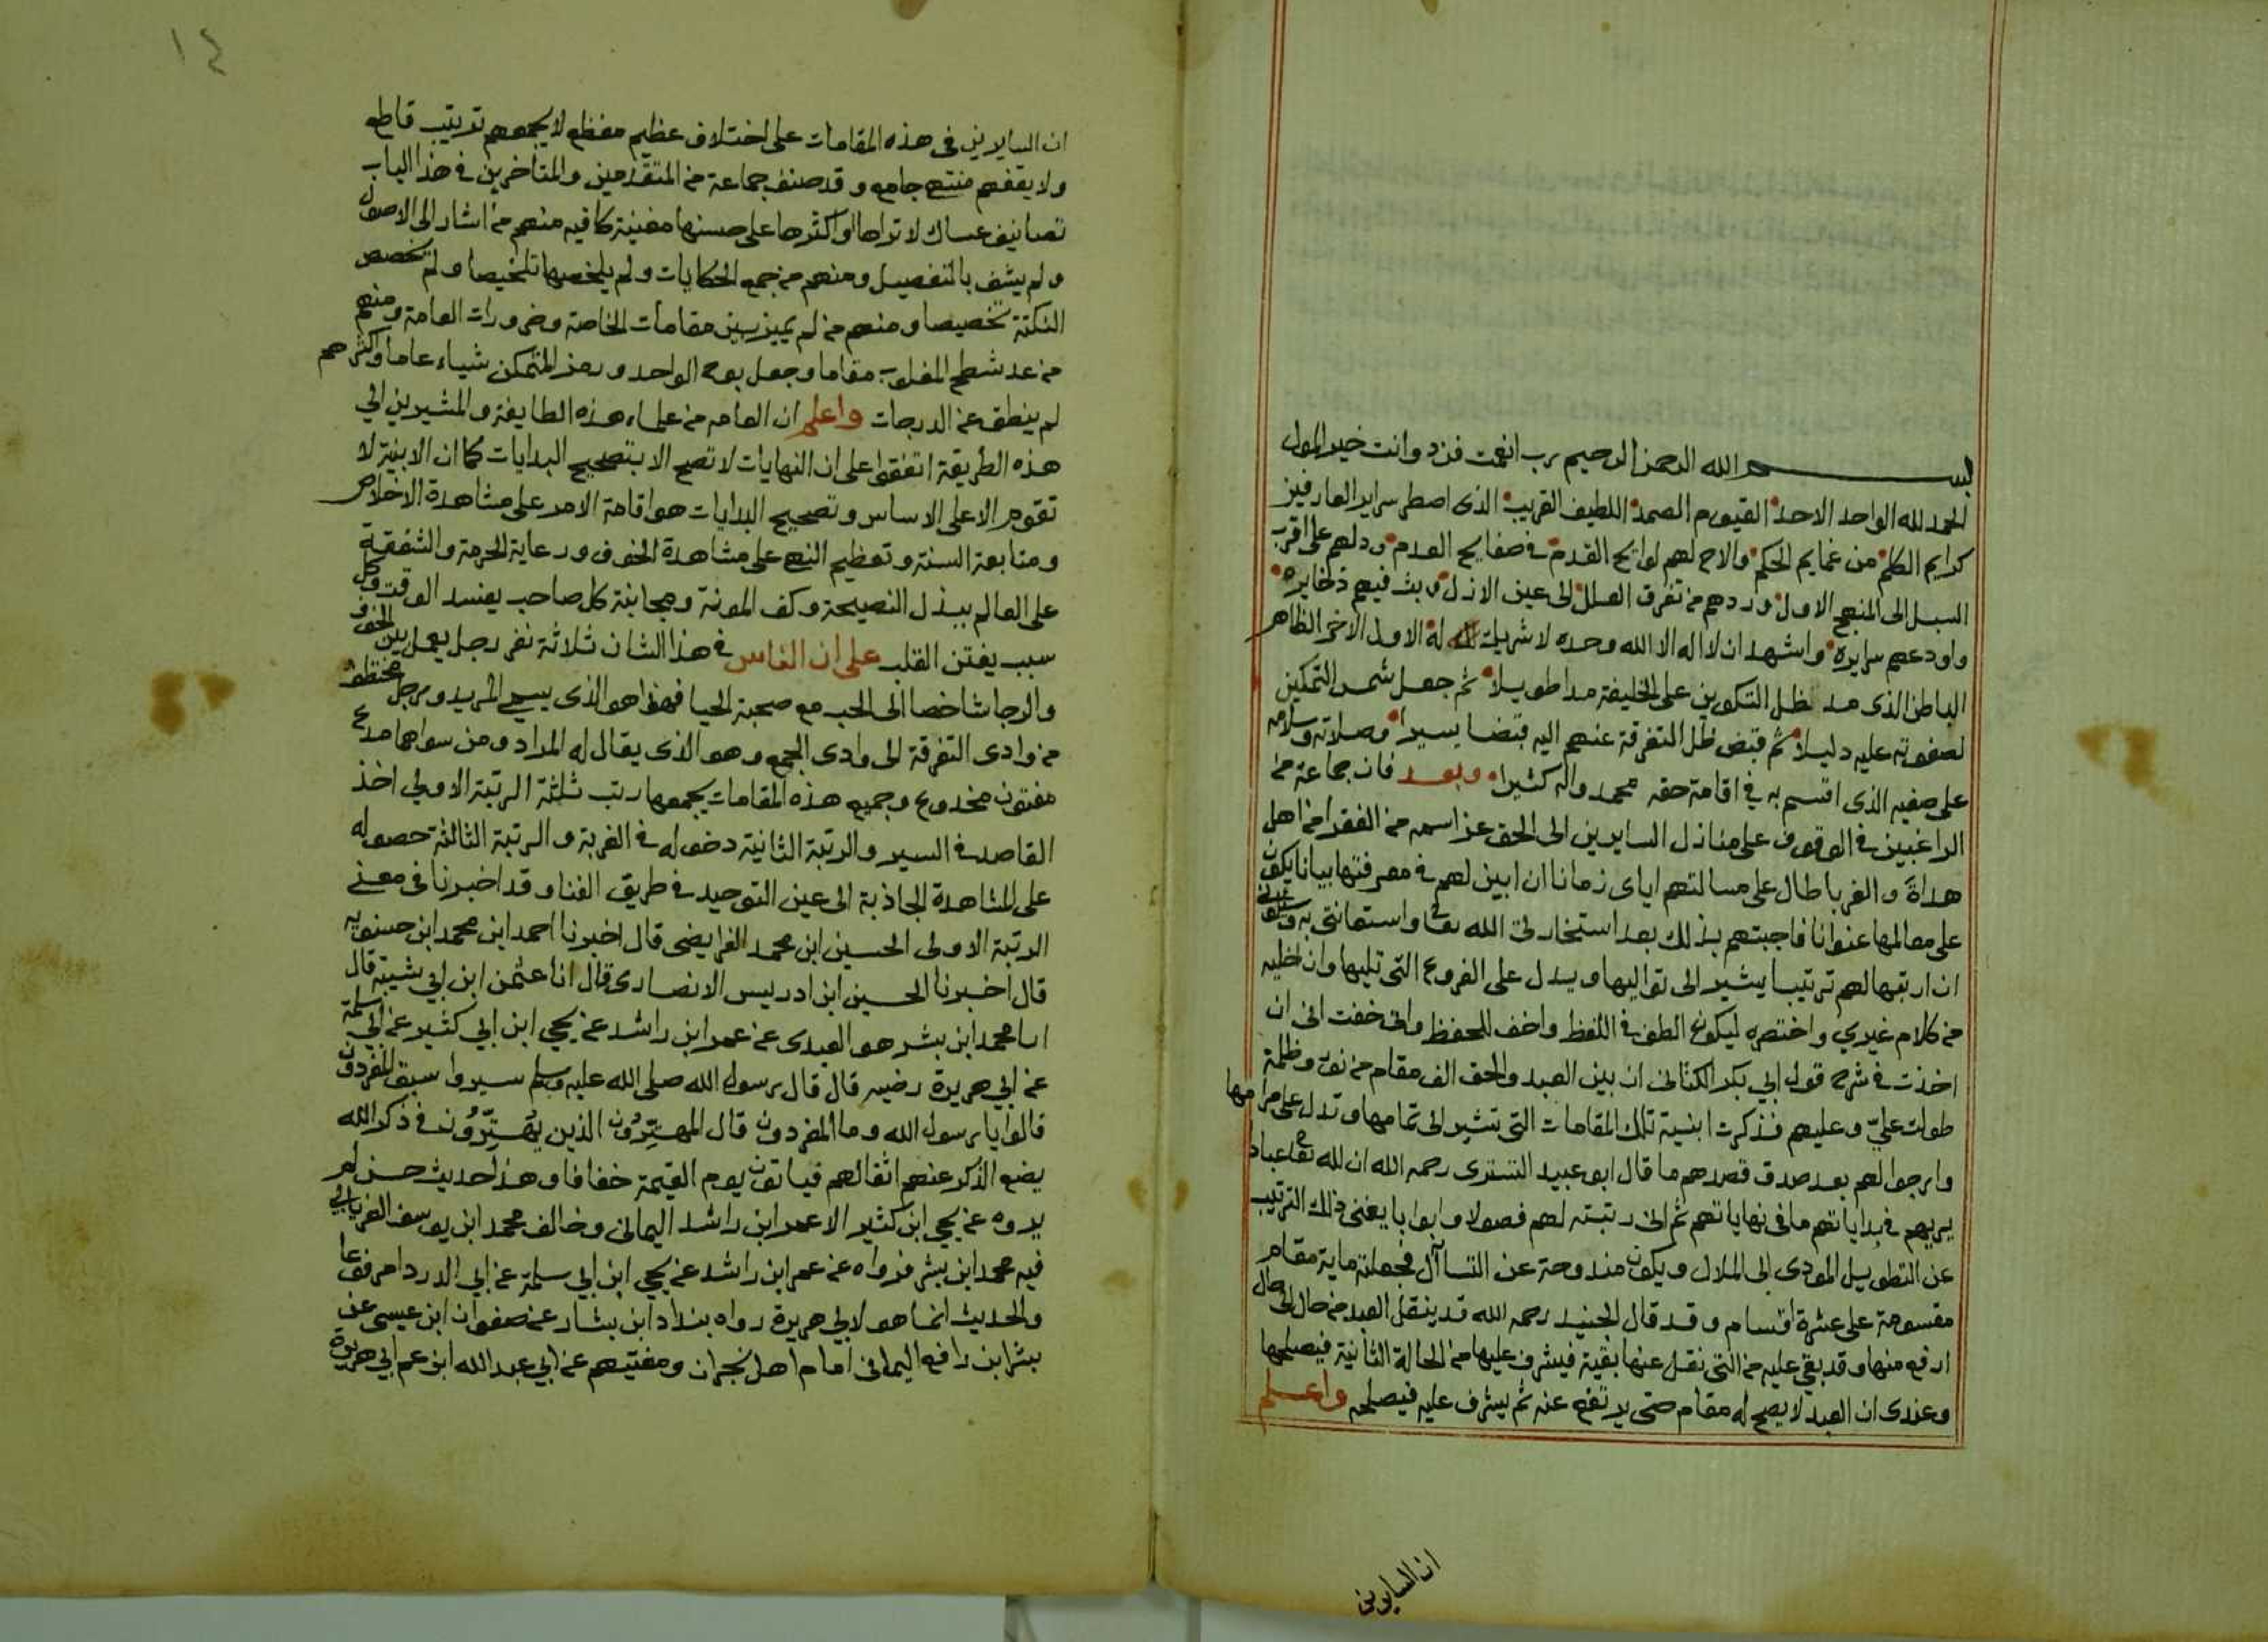 بسم الله الرحمن الرحيم رب انعمت فزد وانت خير المول
الحمد لله الواحد الاحد القيوم الصمد اللطيف القريب الذى اصطر سراير العارفين
كرايم الكلم من غمايم الحكم والاح لهم لوايح القدم فى صفايح العدم ودلهم على اقرب
السبل الى المنهج الاول وردهم من تفرق العلل الى عين الازل وبث فيهم ذخايره
واودعهم سرايره واشهد ان لا اله الا الله وحده لا شريك له الاول الاخر الظاهر
الباطن الذى مد ظل التكوين على الخليفة مدا طويلا ثم جعل شمس التمكين
لصفوته عليه دليلا ثم قبض ظل التفرقة عنهم اليه قبضا يسيرا وصلاته وسلامه
على صفيه الذى اقسم به فى اقامة حقه محمد واله كثيرا وبعد فان جماعة من
الراغبين فى الوقوف على منازل السايرين الى الحق عز اسمه من الفقرا من اهل
هداة والغربا طال على مسالتهم اياى زمانا ان ابين لهم فى معرفتها بيانا يكون
على معالمها عنوانا فاجبتهم بذلك بعد استخارتى الله تعالى واستعانتى به وسالونى
ان ارتبها لهم ترتيبا يشير الى تواليها ويدل على الفروع التى تليها وان اخليه
من كلام غيرى واختصره ليكون الطف فى اللفظ واخف للحفظ وانى خفت انى ان
اخذت فى شرح قول ابى بكر الكتانى ان بين العبد والحق الف مقام من نور وظلمة
طولت على وعليهم فذكرت ابنية تلك المقامات التى تشير الى تمامها وتدل على مرامها
وارجوا لهم بعد صدق قصدهم ما قال ابو عبيد التسترى رحمه الله ان لله تعالى عبادا
يريهم فى بداياتهم ما فى نهاياتهم ثم انى رتبته لهم فصولا وابوابا يغنى ذلك الترتيب
عن التطويل المودى الى الملال ويكون مندوحة عن التساآل فجعلته ماية مقام
مقسومة على عشرة اقسام وقد قال الجنيد رحمه الله قد ينقل العبد من حال الى حال
ارفع منها وقد بقى عليه من التى نقل عنها بقية فيشرف عليها من الحالة الثانية فيصلحها
وعندى ان العبد لا يصح له مقام حتى يرتفع عنه ثم يشرف عليه فيصلحه واعلم
ان السايرين
١٤
ان السايرين فى هذه المقامات على اختلاف عظيم مفظع لا يجمعهم ترتيب قاطع
ولا يقفهم منتهى جامع وقد صنف جماعة من المتقدمين والمتاخرين فى هذا الباب
تصانيف عساك لا تراها او اكثرها على حسنها مغنية كافيه منهم من اشار الى الاصول
ولم يشف بالتفصيل ومنهم من جمع الحكايات ولم يلخصها تلخيصا ولم تخصص
النكتة تخصيصا ومنهم من لم يميز بين مقامات الخاصة وضرورات العامة ومنهم
من عد شطح المغلوب مقاما وجعل بوح الواحد ورمز المتمكن شياء عاما واكثرهم
لم ينطق عن الدرجات واعلم ان العامه من علماء هذه الطايفة والمشيرين الى
هذه الطريقة اتفقوا على ان النهايات لا تصح الا بتصحيح البدايات كما ان الابنية لا
تقوم الا على الاساس وتصحيح البدايات هو اقامة الامر على مشاهدة الاخلاص
ومتابعة السنة وتعظيم النهى على مشاهدة الخوف ورعاية الحرمة والشفقة
على العالم ببذل النصيحة وكف المونة ومجانبة كل صاحب يفسد الوقت وكل
سبب يفتن القلب على ان الناس فى هذا الشان ثلاثة نفر رجل يعمل بين الخوف
والرجا شاخصا الى الحب مع صحبة الحيا فهذا هو الذى يسمى المريد ورجل مختطف
من وادى التفرقة الى وادى الجمع وهو الذى يقال له المراد ومن سواهما مدع
مفتون مخدوع وجميع هذه المقامات يجمعها رتب ثلثة الرتبة الاولى اخذ
القاصد فى السير والرتبة الثانية دخوله فى الغربة والرتبة الثالثة حصوله
على المشاهدة الجاذبة الى عين التوحيد فى طريق الفنا وقد اخبرنا فى معنى
الرتبة الاولى الحسين ابن محمد الفرايضى قال اخبرنا احمد ابن محمد ابن حسنويه
قال اخبرنا الحسين ابن ادريس الانصارى قال انا عثمن ابن ابى شيبة قال
انا محمد ابن بشر هو العبدى عن عمر ابن راشد عن يحيى ابن ابى كثير عن ابى سلمة
عن ابى هريرة رضيه قال قال رسول الله صلى الله عليه وسلم سيروا سبق المفردون
قالوا يا رسول الله وما المفردون قال المهتزون الذين يهتزون فى ذكر الله
يضع الذكر عنهم اثقالهم فياتون يوم القيمة خفافا وهذا حديث حسن لم
يروه عن يحيى ابن كثير الا عمر ابن راشد اليمانى وخالف محمد ابن يوسف الفريابى
فيه محمد ابن بشر فرواه عن عمر ابن راشد عن يحيى ابن ابى سلمة عن ابى الدردا مرفوعا
والحديث انما هو لابى هريرة رواه بندار ابن بشار عن صفوان ابن عيسى عن
بشر ابن رافع اليمانى امام اهل نجران ومفتيهم عن ابى عبد الله ابن عم ابى هريرة